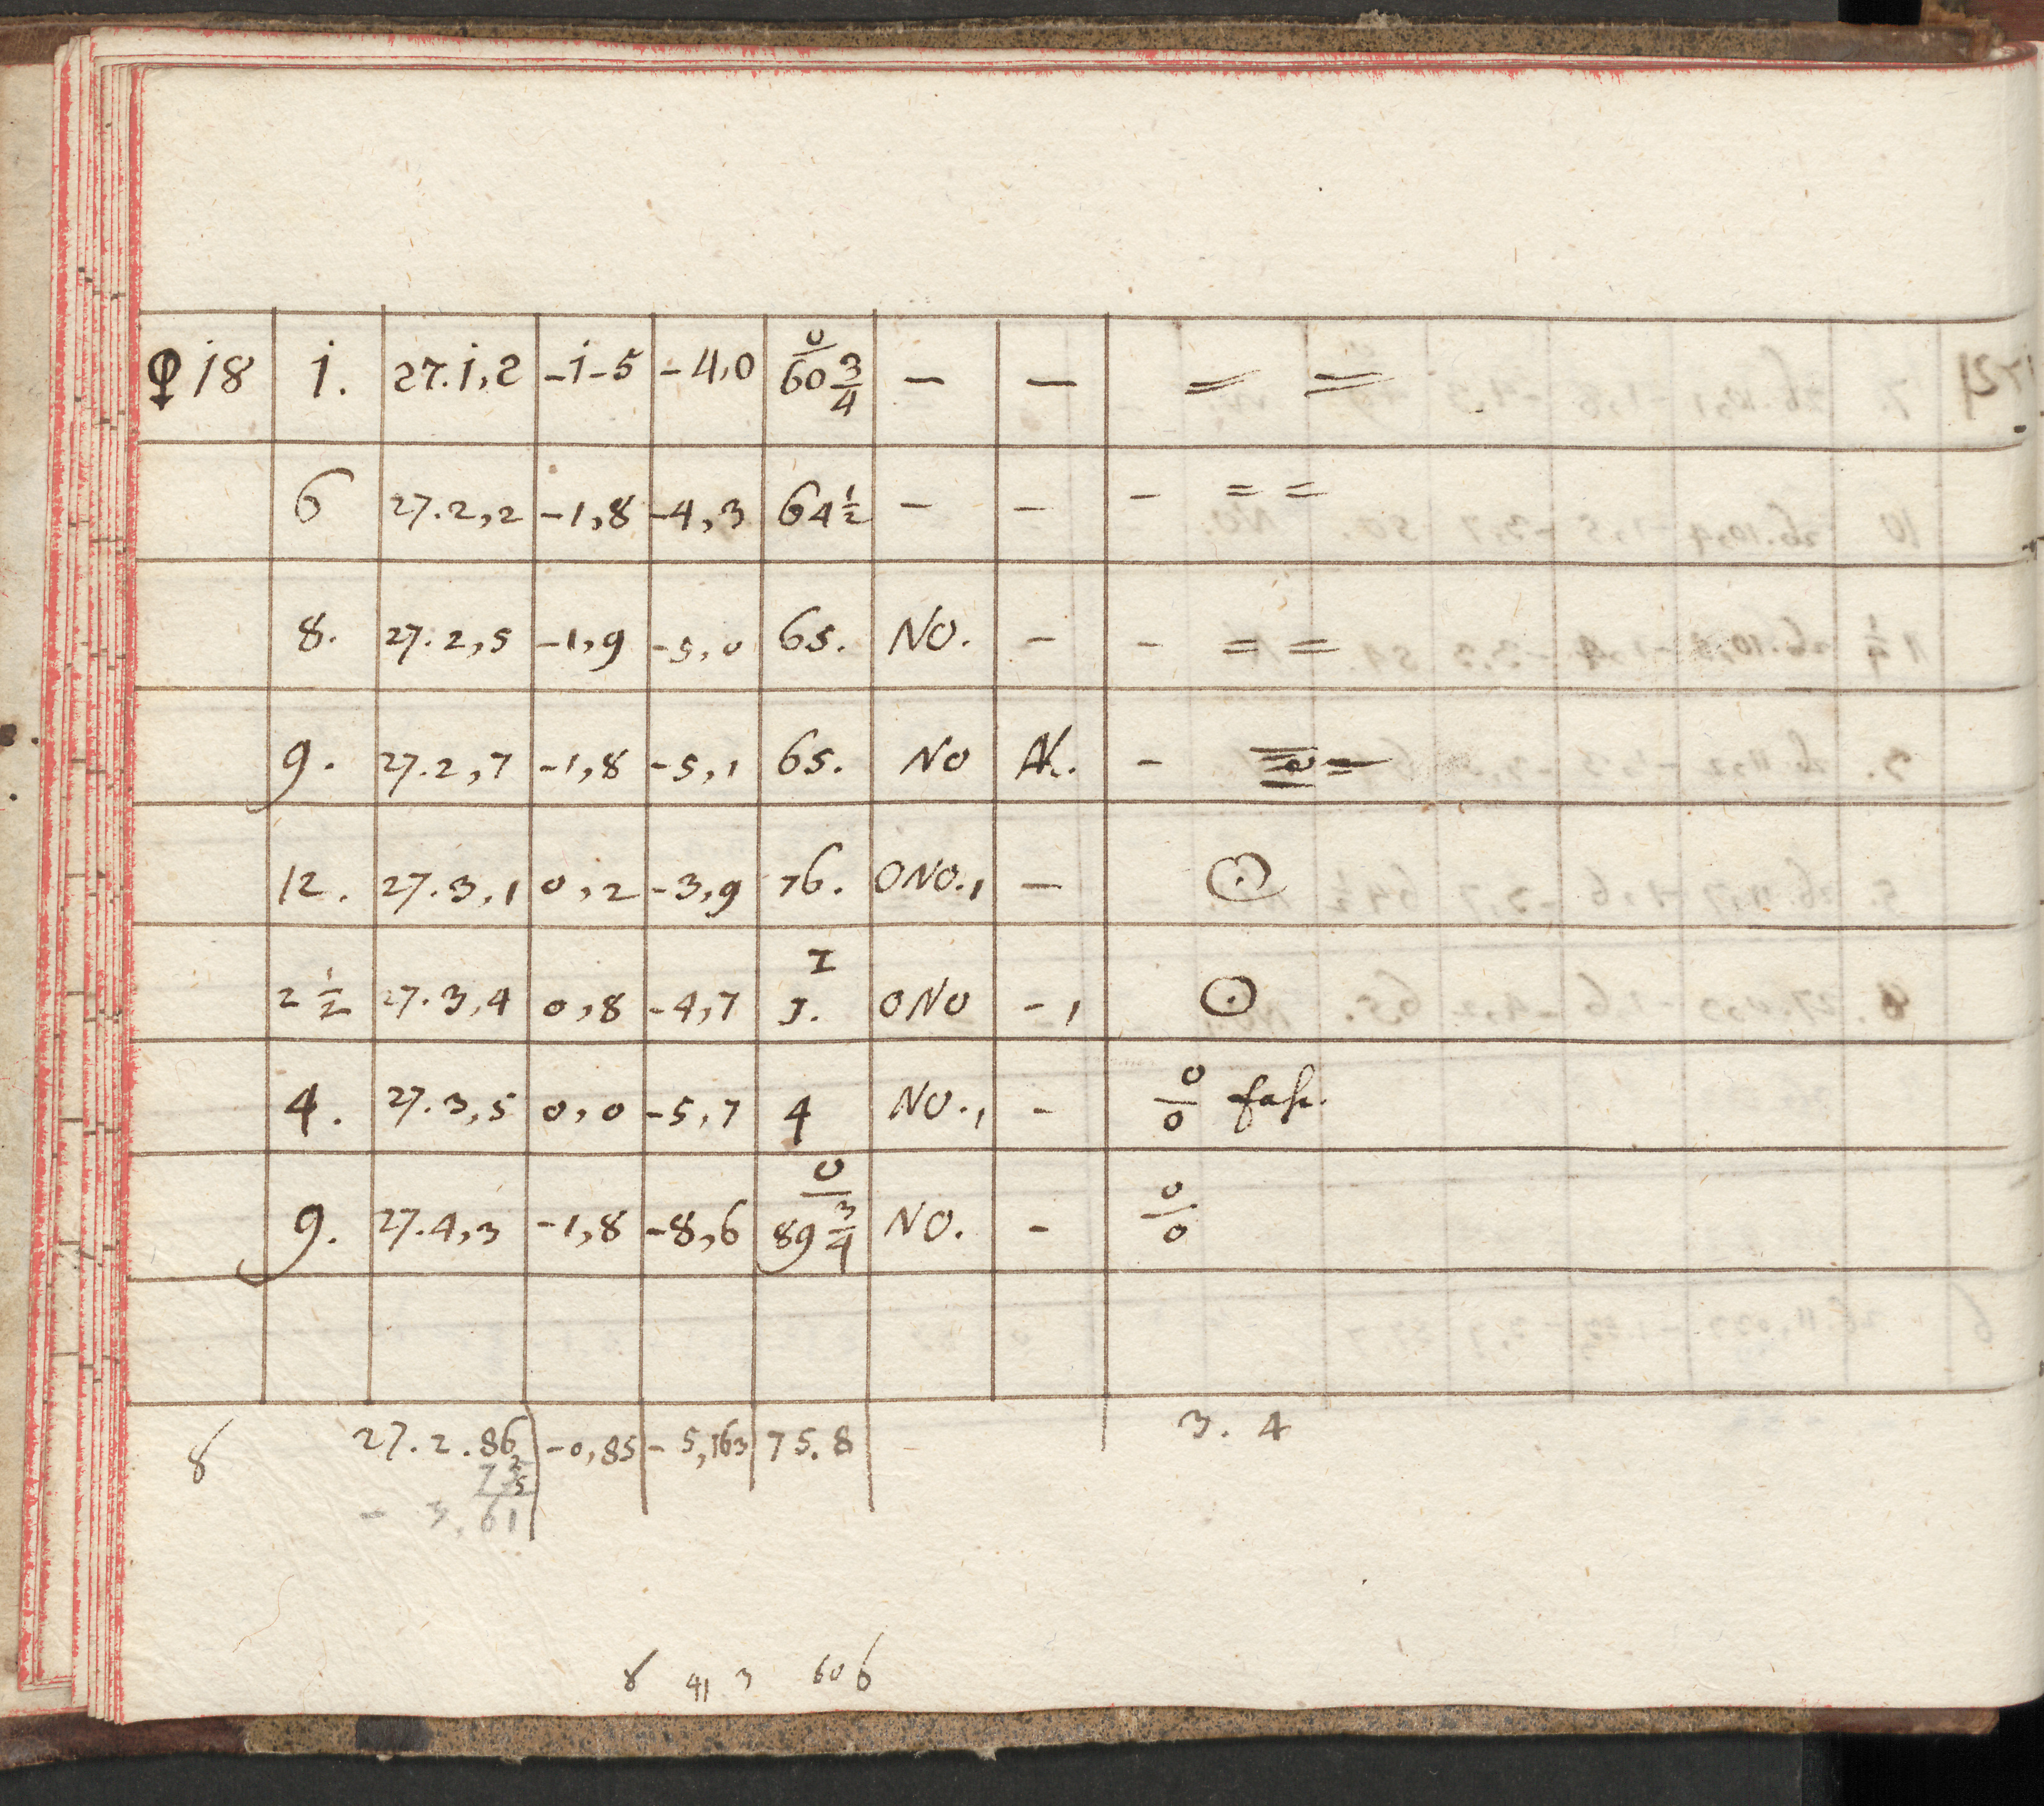 ♀ 18 1. 27.1,2 -1-5 -4,0 0/60 3/4 — — = =
6 27.2,2 -1,8 -4,3 64 1/2 - - - = =
8. 27.2,5 -1,9 -5,0 65. NO. - - = =
9. 27.2,7 -1,8 -5,1 65. NO - =
12. 27.3,1 0,2 -3,9 76. ONO., — ⊙
2 1/2 27.3,4 0,8 -4,7 I 1. ONO -, ⊙
4. 27.3,5 0,0 -5,7 4 NO., - 0/0
9. 27.4,3 -1,8 -8,6 0/89 3/4 NO. - 0/0
8 27.2.86 -0,85 -5,163 75.8 3.4
- 3,61
8 41 3 606